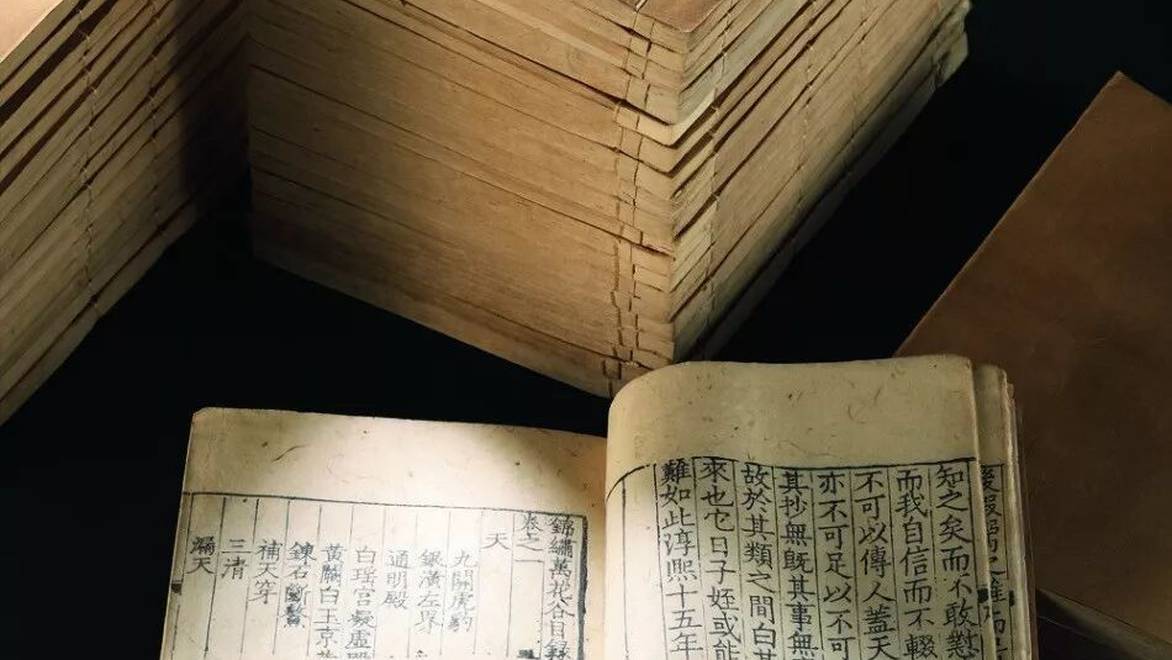 知之矣而不敢懟
而我自信而不輟
不可以傳人蓋天
亦不可足以不可
其抄無既其事無
故於其類之間白其
來也它日子姪或能
難如此淳熈十五年
錦繡萬花谷目錄
卷之一
天
九關虎豹
銀潢左界
通明殿
白瑶宫凝虚殿
黃闕白玉京
鍊石斷鰲
補天穿
三清
漏天